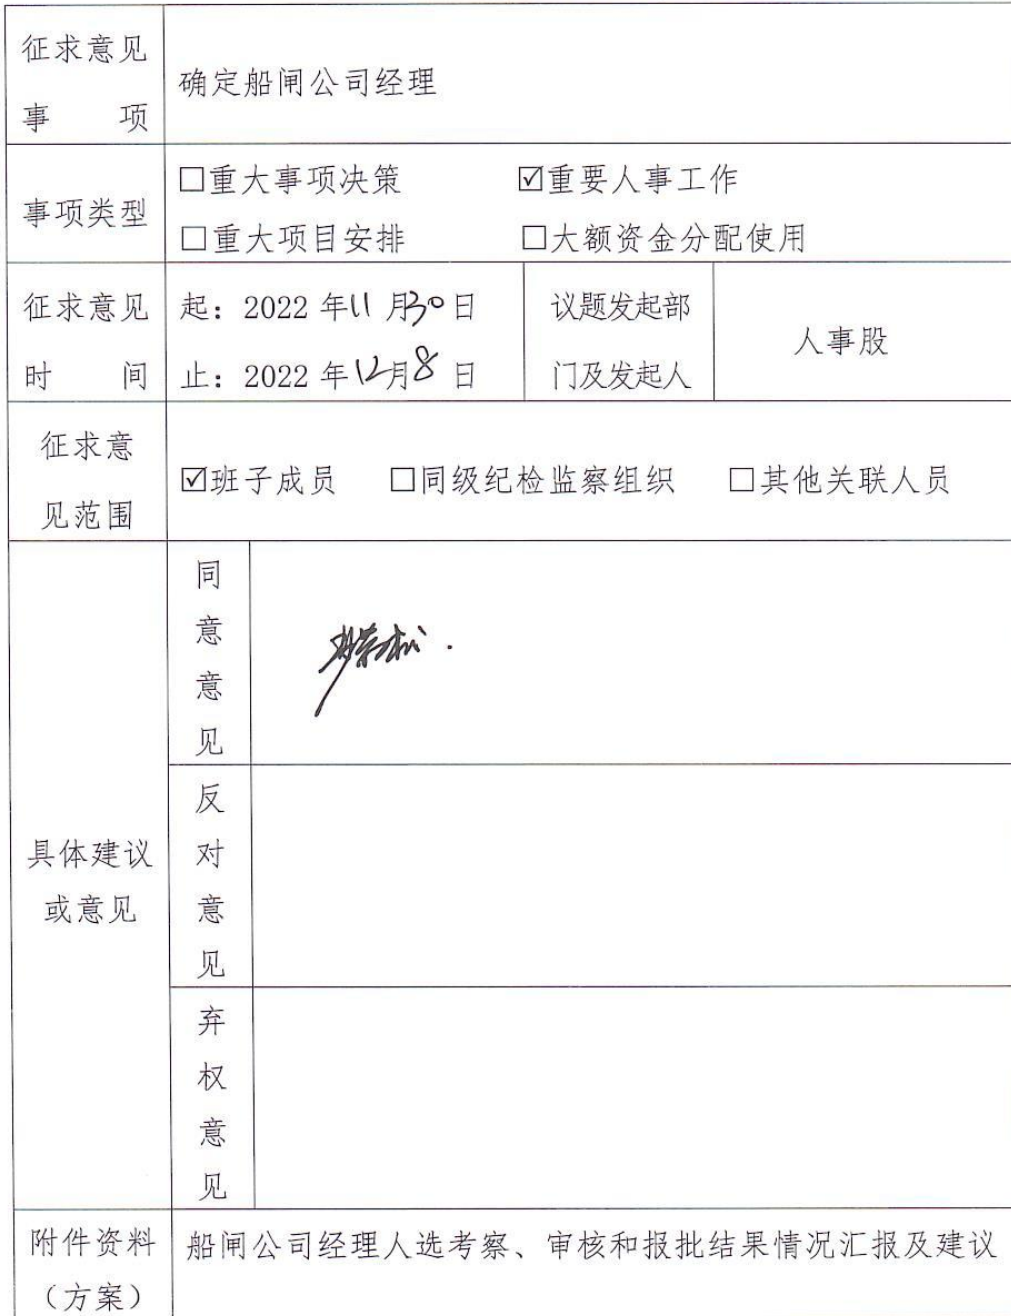 征求意见
事 项
确定船闸公司经理
事项类型
□重大事项决策 ☑重要人事工作
□重大项目安排 □大额资金分配使用
征求意见
时 间
起：2022 年11 月30日
止：2022 年12月8 日
议题发起部
门及发起人
人事股
征求意
见范围
☑班子成员 □同级纪检监察组织 □其他关联人员
具体建议
或意见
同
意
意
见
反
对
意
见
弃
权
意
见
附件资料
（方案）
船闸公司经理人选考察、审核和报批结果情况汇报及建议